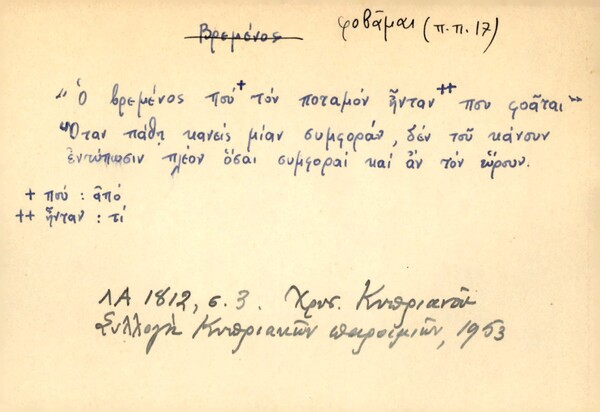 Βρεμένος φοβᾶμαι (π.π. 17)
"Ὁ βρεμένος πού+ τὸν ποταμόν ἦνταν++ που φοᾶται"
Ὅταν πάθῃ κανείς μίαν συμφοράν, δέν τοῦ κάνουν
ἐντύπωσιν πλέον ὅσαι συμφοραί καί ἄν τόν εὕρουν.
+ πού : ἀπό
++ ἦνταν : τί
ΛΑ 1812, σ. 3. Χρυσ. Κυπριανοῦ
Συλλογή Κυπριακῶν παροιμιῶν, 1953